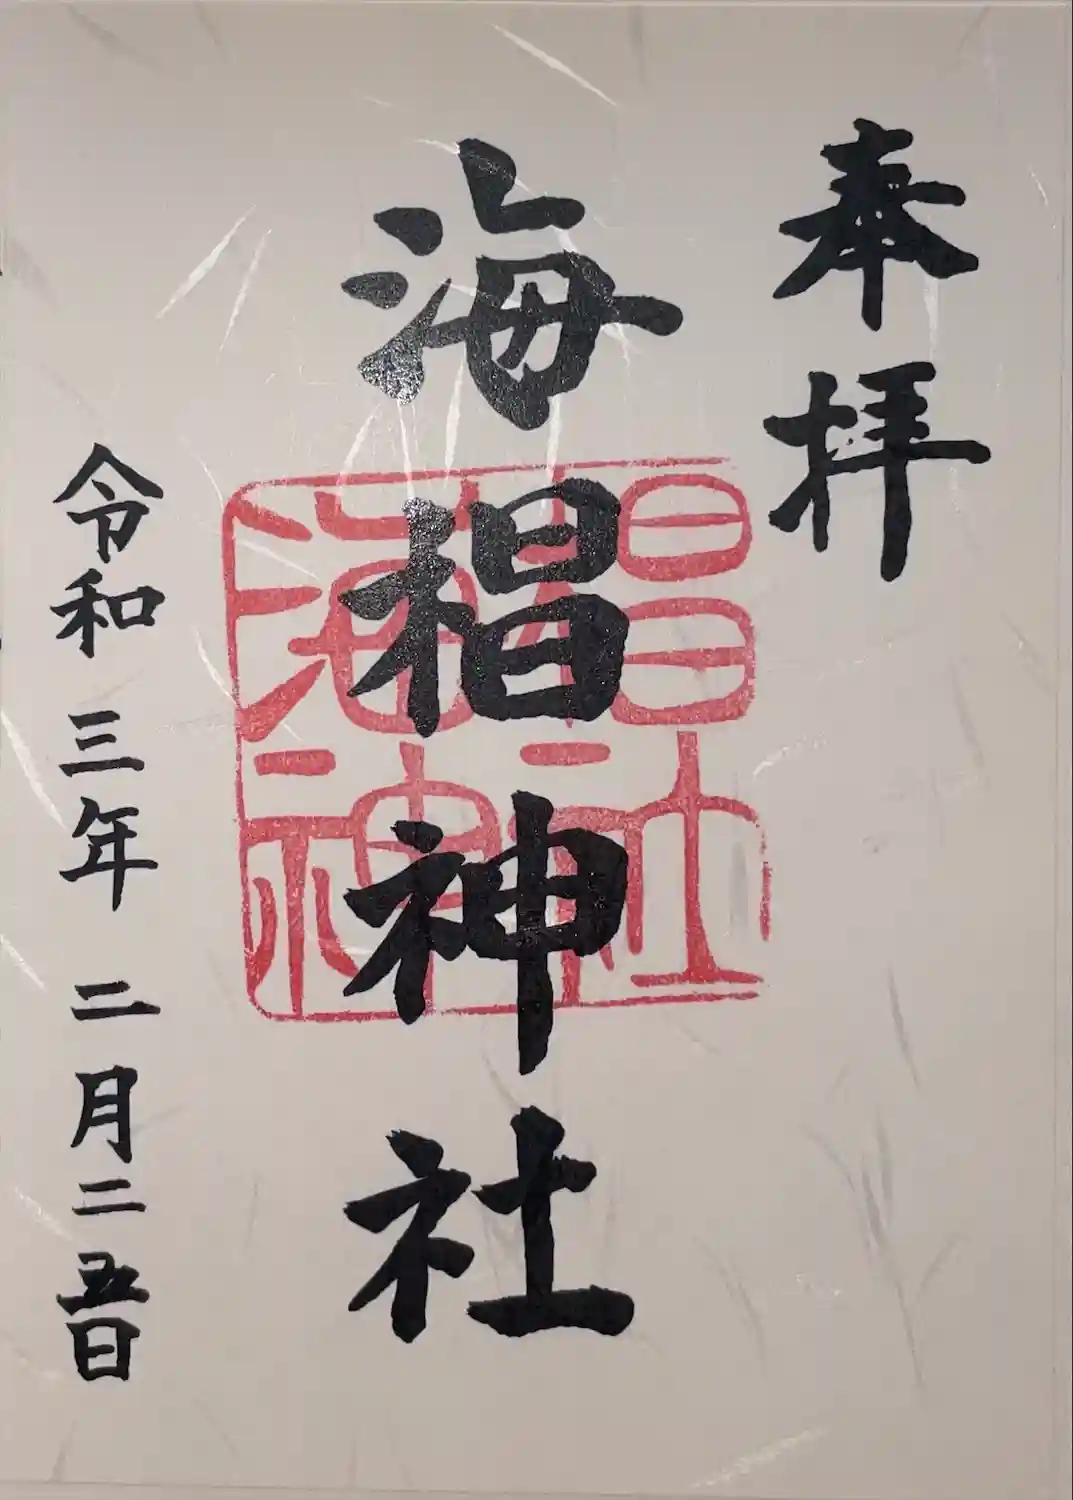 奉拝
海椙神社
海椙神社
令和三年二月二五日